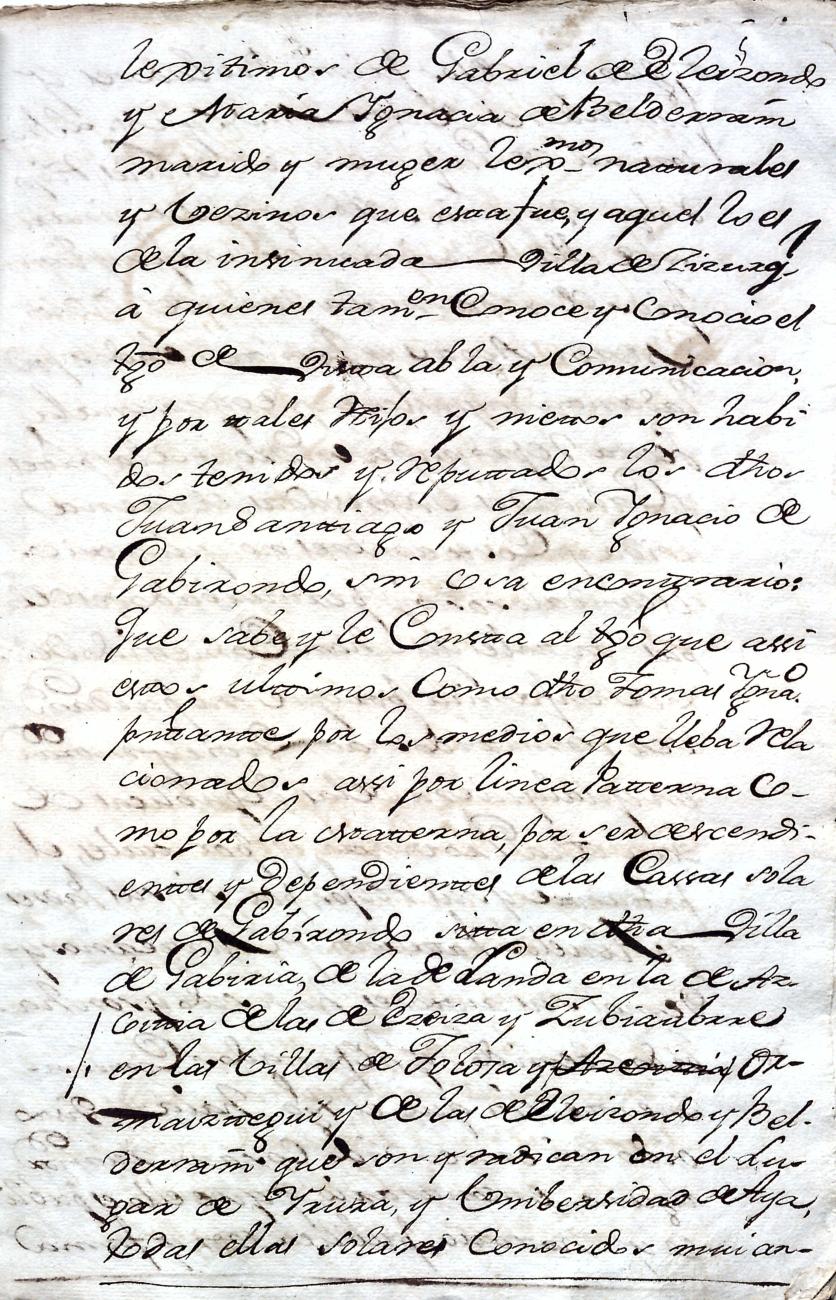 lexitimos de Gabriel de Eleizondo
y Maria Ygnacia de Belderrain
marido y muger lexmos naturales
y Vezinos que esta fue, y aquel lo es
de la insinuada Villa de Zizurql
à quienes tamen Conoce y Conocio el
tgo de Vista abla y Comunicacion,
y por tales Hijos y niettos son habi
dos tenidos y reputtados los dhos
Juan Santiago y Juan Ygnacio de
Gabirondo, sin cosa encontrario:
Que sabe y le Consta al tgo que assi
estos ultimos como dho Tomas Ygno
pntante, por los medios que lleba rela
cionados assi por linea Patterna co-
mo por la Matterna, por ser descendi-
entes y dependientes de las Cassas sola
res de Gabirondo sitta en dha Villa
de Gabiria, de la de Landa en la de Az-
coitia de las de Ezeiza y Zubiaurre
en las Villas de Tolosa y Azcoitia Or-
maiztegui y de las de Eleizondo y Bel-
derrain que son y radican en el Lu-
gar de Yrura, y Unibersidad de Aya,
todas ellas solares Conocidos mui an-